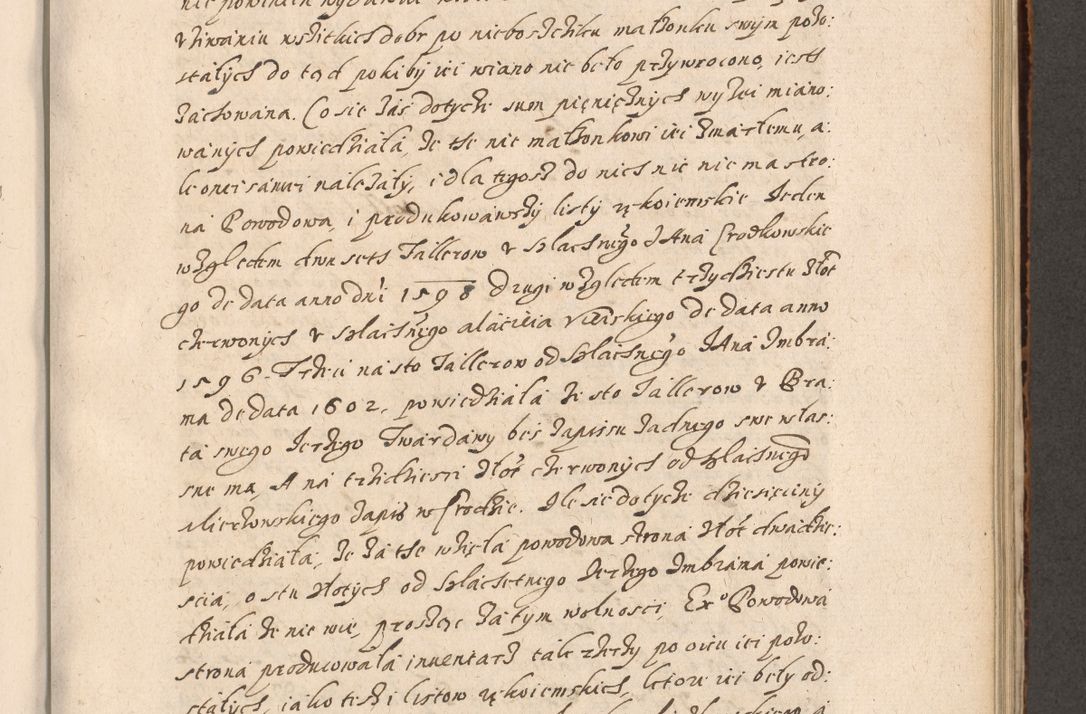 vżiwaniu wszitkich dobr po nieboszcziku małżonku swym pozo:
stałych do tąd pokiby iei wiano nie beło przywrocono, iest
zachowana. Co sie zaś dotycze sum pieniężnych wyżei miano:
wanych powiedziała, że the nie małżonkowi iei zmarłemu, a:
le onei samei należały, i dla tegosz do nich nic nie ma stro:
na Powodowa, i produkowawszy listy rękoiemskie Jeden
względem dwu seth Tallerow v szlachnego Jana Czodkowskie
go de data anno dni 1598 drugi względem trzydziestu złot
czerwonych v szlachnego de data anno
1596. Trzeci na sto Tallerow od szlachnego Jana Imbra:
ma de data 1602, powiedziała że sto Tallerow v Bra:
ta swego Jerzego Twardawy bes zapisu żadnego swe włas:
sne ma, A na trzidziesci złot czerwonych od szlachnego
zapis w srodzie. Ile sie dotycze dziesięciny
powiedziała, że za the wzięła powodowa strona złot dwadzie:
scia, o stu złotych od szlachetnego Jerzego Imbrama powie:
działa że nie wie, prosząc za tym wolnosci, Exo Powodowa
strona producowała inuentarz tale rzeczy po oicu iei pozo:
stałych, iako też i listow rękoiemskich, ktore iei były od: